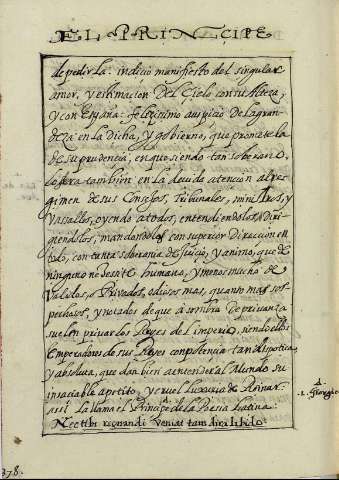 EL PRINCIPE
de pedirla: indicio manifiesto del singular
amor, y estimacion Del Cielo con su Alteza,
y con España: felicisimo auspicio de la gran
deza en la Dicha, y gobierno, que promete la
de su prudencia, en que siendo tan soberano,
lo sera tambien en la devida atencion al re
gimen de sus Consejos, Tribunales, ministros, y
Vassallos, oyendo a todos, entendiendolos, y diri
giendolos, mandandolos con superior Direccion en
todo, con tanta soberania de juicio, y animo, que de
ninguno necesite humano, y menos mucho de
Validos, o Privados, odiosos mas, quanto mas sos
pechosos, y notados de que a sombra de privanza
suelen privar los Reyes de l'imperio, siendo ellos
Emperadores de sus Reyes con potencia tan dispotica,
y absoluta, que dan bien a entender al Mundo su
insaciable apetito, y cruel luxuria de Reinar.
assi la llama el Principe de la Poesia Latina.
Nec tibi regnandi veniat tam dira libido.
1. Georgic
378.